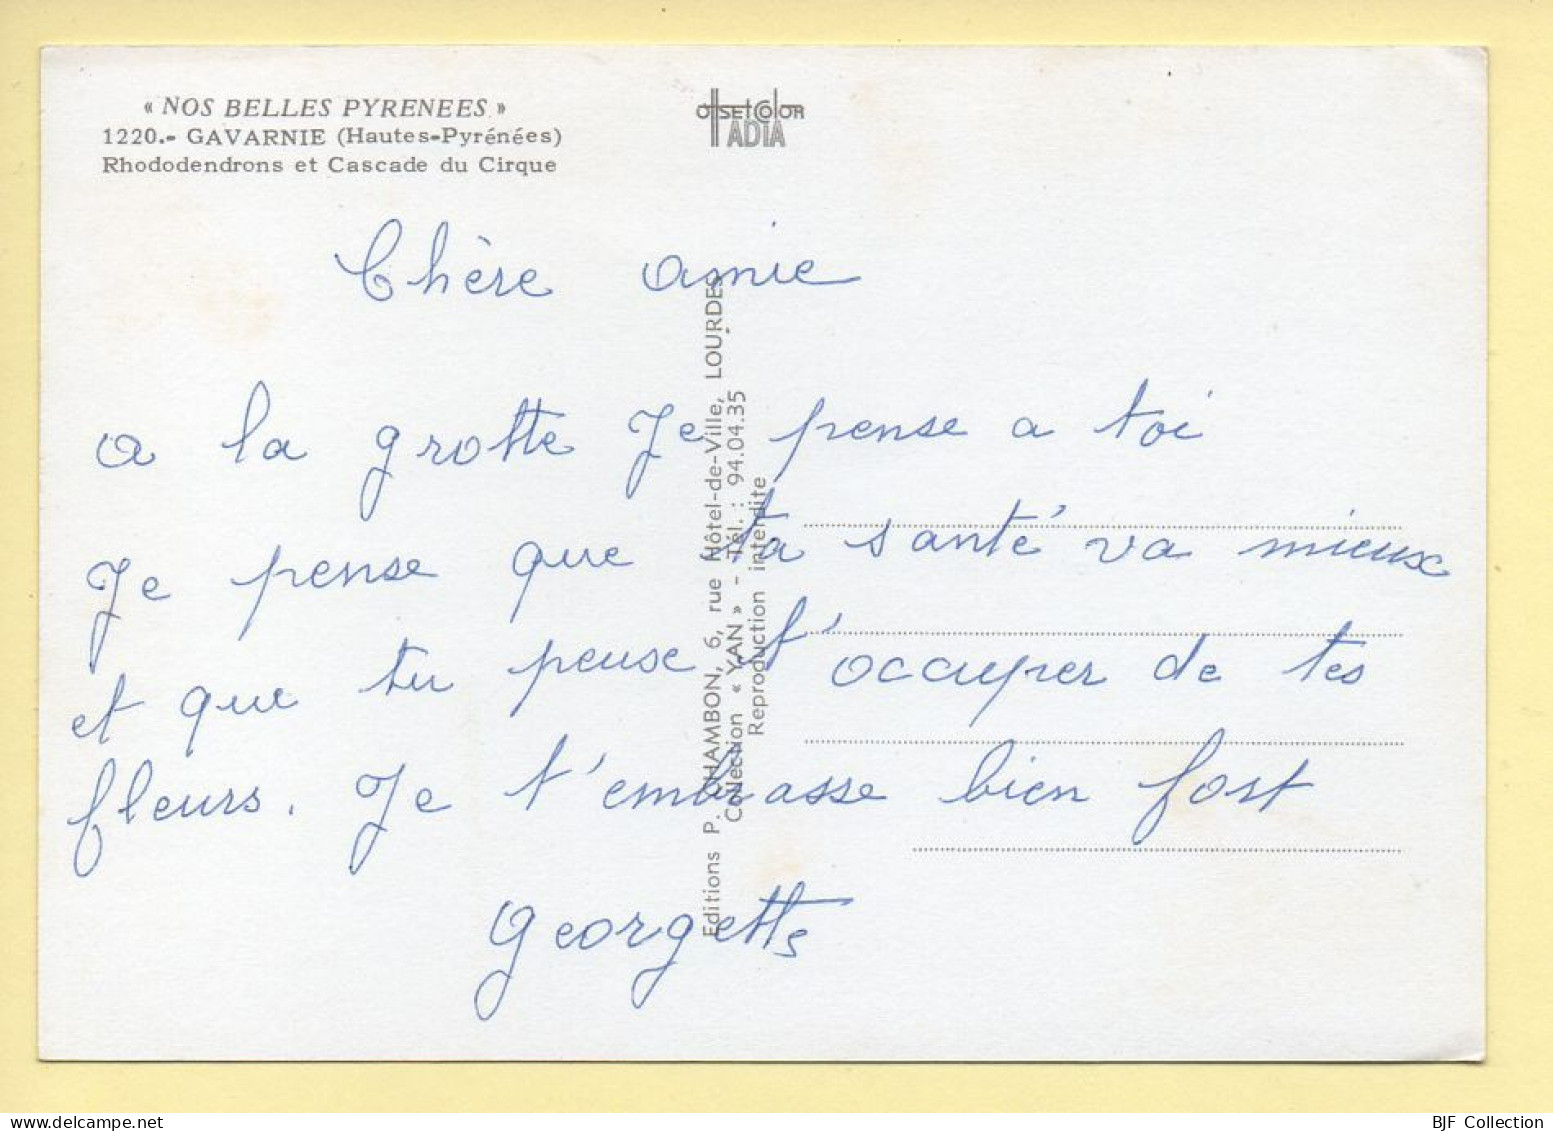 « NOS BELLES PYRENEES »
1220.- GAVARNIE (Hautes-Pyrénées)
Rhododendrons et Cascade du Cirque
OffsetColor
ADIA
Chère amie
a la grotte Je pense a toi
Je pense que ta santé va mieux
et que tu peux t'occuper de tes
fleurs. Je t'embrasse bien fort
Georgette
Editions P. CHAMBON, 6, rue Hôtel-de-Ville, LOURDES
Collection « YAN » - Tél. : 94.04.35
Reproduction interdite
BJF Collection